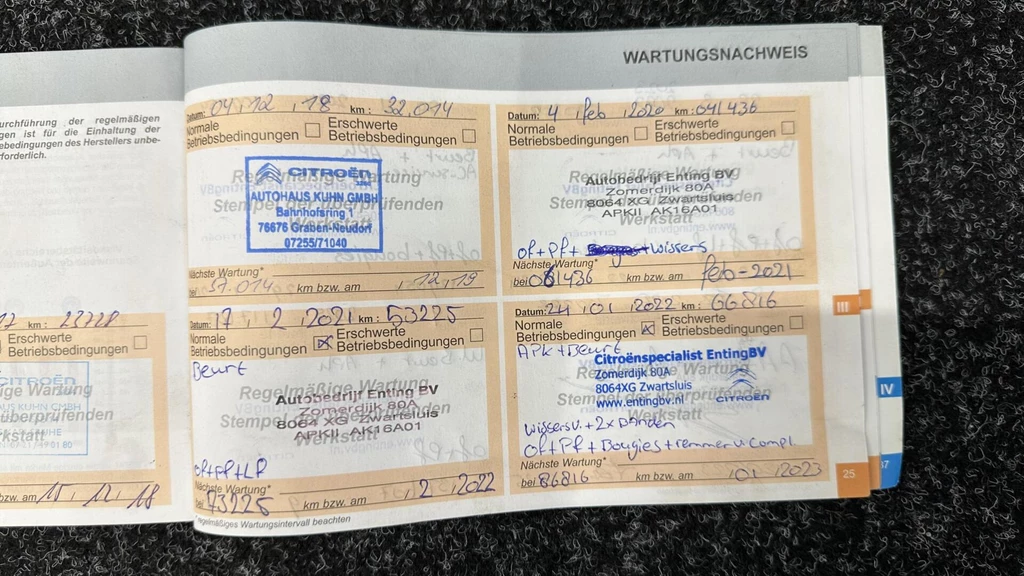 WARTUNGSNACHWEIS
urchführung der regelmäßigen
gen ist für die Einhaltung der
ebedingungen des Herstellers unbe-
forderlich.
km : 23728
Erschwerte
Betriebsbedingungen
CITROËN
überprüfenden
bzw. am 15. 12. 18
Datum: 04, 12, 18 km : 32.014
Normale
Betriebsbedingungen
Erschwerte
Betriebsbedingungen
Regelmäßige Wartung
Stempel der überprüfenden
Werkstatt
CITROËN
AUTOHAUS KUHN GMBH
Bahnhofsring 1
76676 Graben-Neudorf
07255/71040
Nächste Wartung*
bei 57.014 km bzw. am , 12, 19
Datum: 4 , feb , 2020 km : 041436
Normale
Betriebsbedingungen
Erschwerte
Betriebsbedingungen
Regelmäßige Wartung
Stempel der überprüfenden
Werkstatt
Autobedrijf Enting BV
Zomerdijk 80A
8064 XG Zwartsluis
APKII AK16A01
of+Pf+ +wissers
Nächste Wartung*
bei 061436 km bzw. am feb-2021
Datum: 17 , 2 , 2021 km : 53225
Normale
Betriebsbedingungen
Erschwerte
Betriebsbedingungen
Beurt
Regelmäßige Wartung
Stempel der überprüfenden
Werkstatt
Autobedrijf Enting BV
Zomerdijk 80A
8064 XG Zwartsluis
APKII AK16A01
of+PF+LF
Nächste Wartung*
bei 73225 km bzw. am , 2 , 2022
regelmäßiges Wartungsintervall beachten
Datum: 24 , 01 , 2022 km : 66816
Normale
Betriebsbedingungen
Erschwerte
Betriebsbedingungen
APK+Beurt
Regelmäßige Wartung
Stempel der überprüfenden
Werkstatt
Citroënspecialist Enting BV
Zomerdijk 80A
8064XG Zwartsluis
www.entingbv.nl
CITROËN
wissers v. + 2x Banden
of+Pf+Bougies+remmen v. compl
Nächste Wartung*
bei 86816 km bzw. am , 01 , 2023
III
IV
25